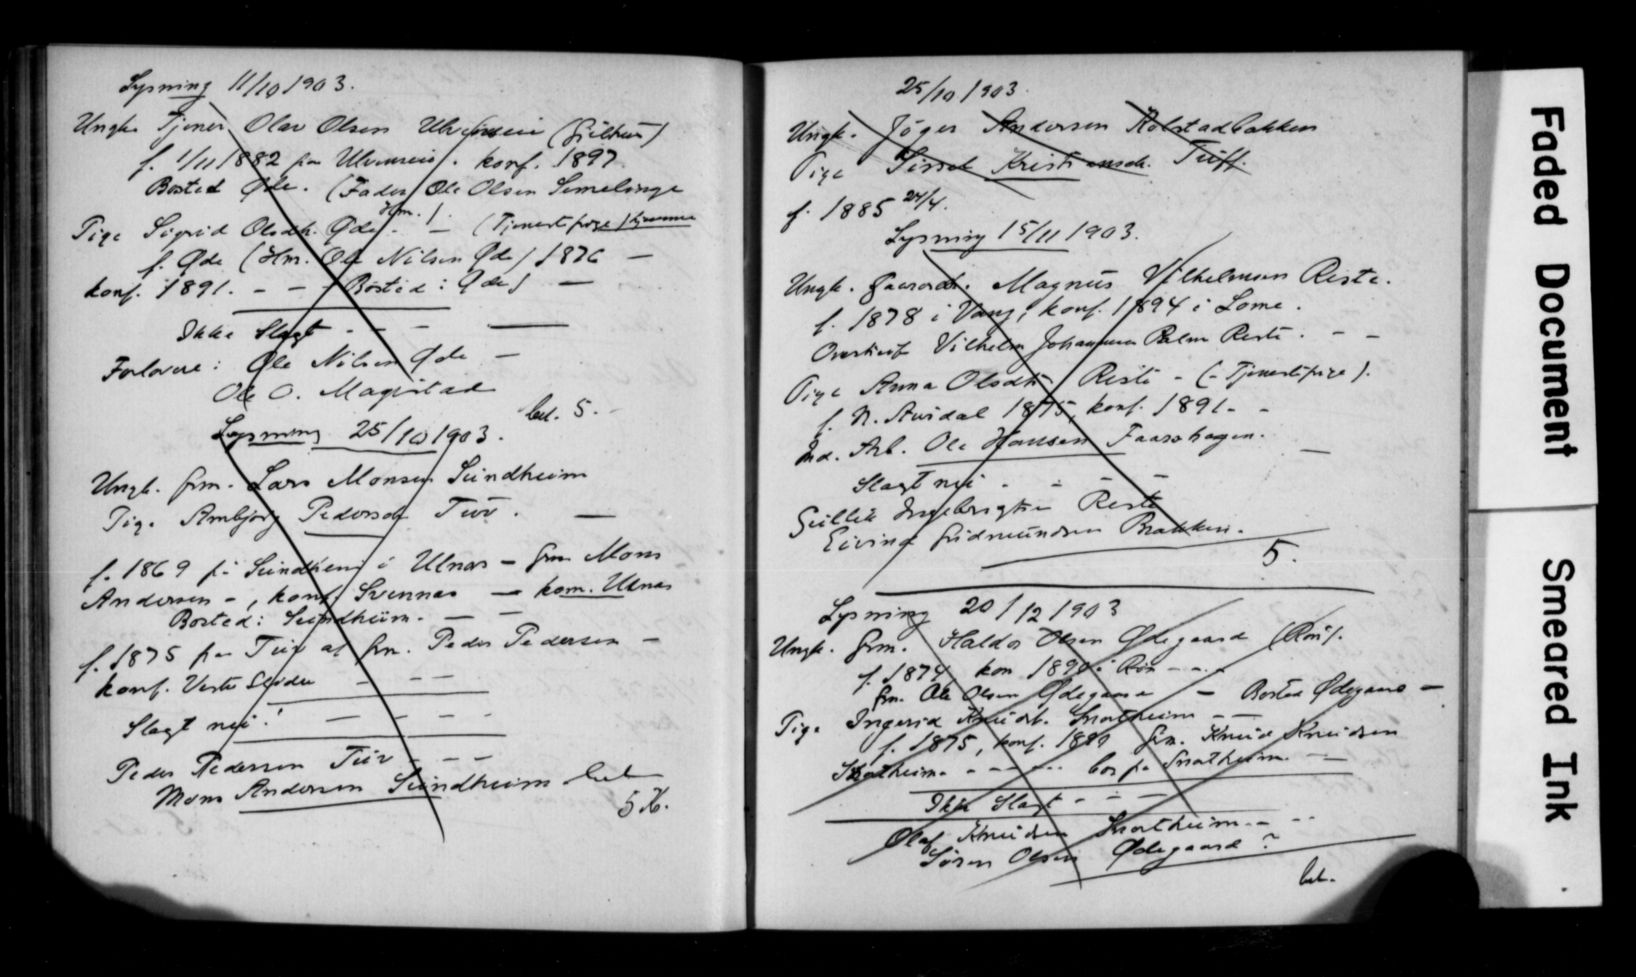 Lysning 11/10 1903.
Ungk. Tjener Olav Olsen
f. 1/11 1882 paa Ulvensein. konf. 1897
Bosted Øde. (Fader Ole Olsen Semelinge
Hm.
Pige Sigrid Olsdt. Øde - (Tjenestepige) hjemme
f. Øde (Hm. Ole Nilsen Øde) 1876 —
konf. 1891. - - Bosted: Øde) —
Ikke Slagt - - - —
Forlovere: Ole Nilsen Øde —
Ole O. Magistad
bet. 5. -
Lysning 25/10 1903.
Ungk. Grm. Lars Monsen Sundheim
Pige Ambjørg Pedersdr. Tuv. —
f. 1869 på Sundheim i Ulnæs - Grm Mons
Andersen -, konf. Svennæs — kom. Ulnæs
Bosted: Sundheim. — —
f. 1875 paa Tuv af Grm. Peder Pedersen —
konf. Vestre Slidre - - -
Slagt nei! — - - -
Peder Pedersen Tuv - - -
Mons Andersen Sundheim bet
5 K.
25/10 1903.
Ungk. Jöger Andersen Kolstadbakken
Pige Sissel Kristiansdt. Tuff.
f. 1885 24/4.
Lysning 15/11 1903.
Ungk. Gaarard. Magnus Vilhelmsen Reste.
f. 1878 i Vang, konf. 1894 i Lome.
Vilhelm Johannsen Palm Reste. - -
Pige Anna Olsdtr Reste - (- Tjenestepige).
f. N. Aurdal 1875, konf. 1891. -
Ind. Arb. Ole Hansen Faarshagen. —
Slagt nei - - - -
Gullik Ingebrigtsen Reste
Eivind Gudmundsen Brakken.
5.
Lysning 20/12 1903
Ungk. Grm. Haldor Olsen Ødegaard (Røn).
f. 1874, kon. 1890 i Røn - - -
Grm. Ole Olsen Ødegaard — Bosted Ødegaard —
Pige Ingerid Knudsdt. Snortheim - —
f. 1875, konf. 1889 Grm. Knud Knudsen
Snortheim - - - - - bor på Snortheim —
Ikke Slagt - - —
Olaf Knudsen Snortheim - - -
Søren Olsen Ødegaard ?
bet.
Faded Document
Smeared Ink